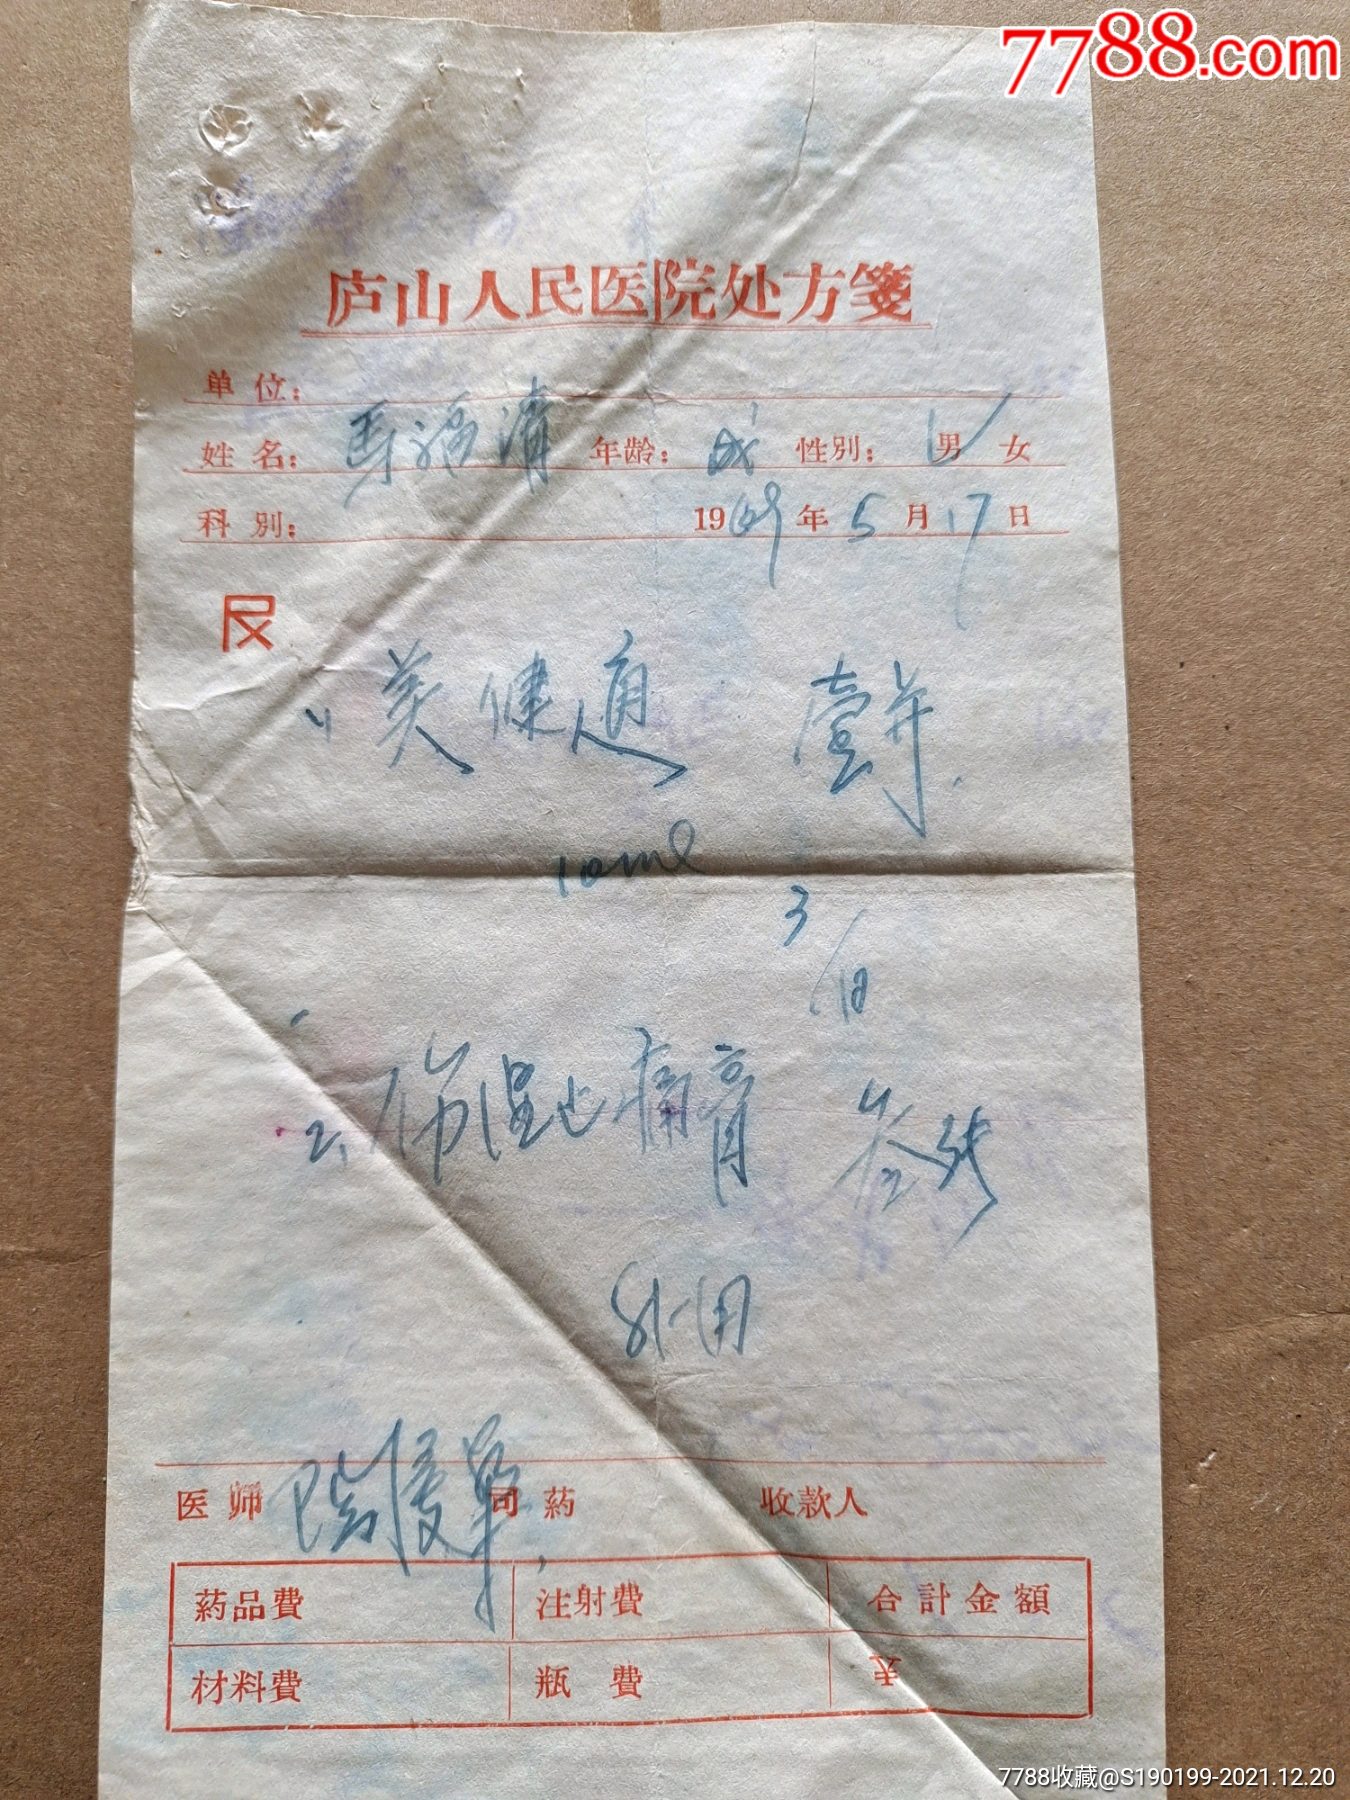 7788.com
庐山人民医院处方笺
单位：
姓名：马福清 年龄：成 性別：男 女
科別： 1969年5月17日
1) 美健通 壹并.
10ml
3/日
2. 伤湿止痛膏 叁张
外用
医师 司药 收款人
葯品費 注射費 合計金額
材料費 瓶費
7788收藏@S190199-2021.12.20